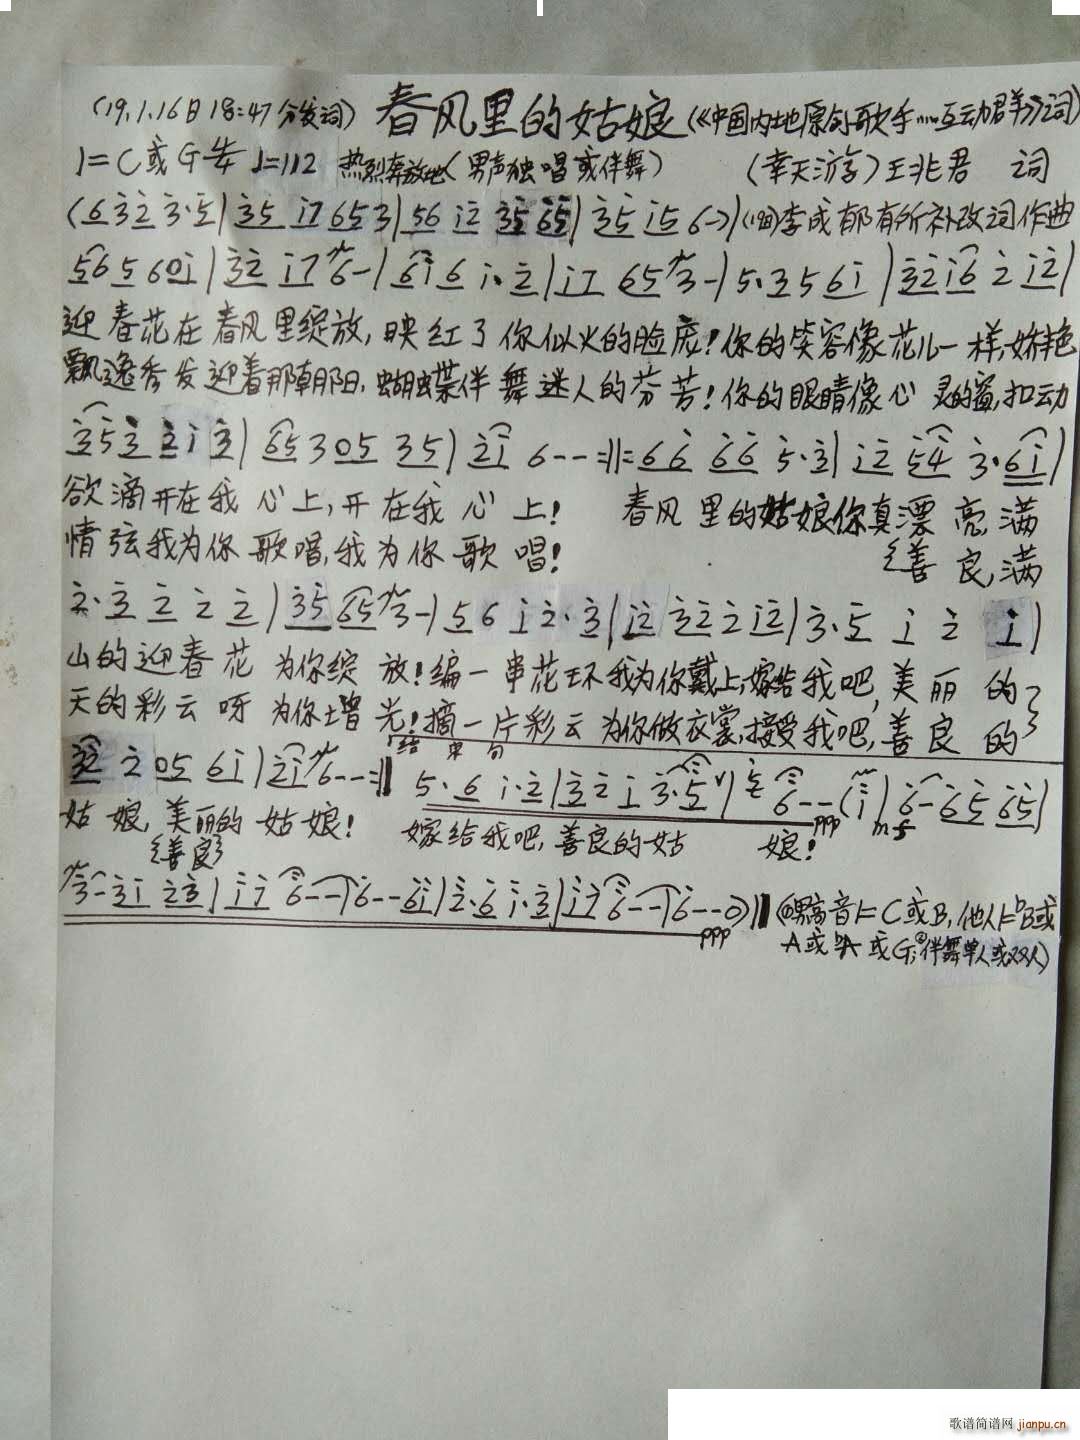 (19.1.16日18:47分发词) 春风里的姑娘(《中国内地原创歌手……互动群》词)
1=C或G 4/4 ♩=112 热烈奔放地(男声独唱或伴舞) (幸天游子)王兆君 词
(6 3 2 3·5|35 i7 653|56 i2 35 65|35 i5 6-)|(唱)李成郁有所补改词作曲
56 5 6 0i|32 i7 6-|6i 6 i·2|i7 65 3-|5·3 5 6i|32 i6 2 i2|
迎春花在春风里绽放,映红了你似火的脸庞!你的笑容像花儿一样,娇艳
飘逸秀发迎着那朝阳,蝴蝶伴舞迷人的芬芳!你的眼睛像心灵的窗,扣动
353 2 i 3|65 3 05 35|2i 6--:||:66 66 5·3|i2 54 3·6i|
欲滴开在我心上,开在我心上! 春风里的姑娘你真漂亮,满
情弦我为你歌唱,我为你歌唱! {善良,满
2·3 2 2 2|35 65 3-|5 6 i 2·3|i2 32 2 i2|3·5 i 2 i|
山的迎春花为你绽放!编一串花环我为你戴上,嫁给我吧,美丽的
天的彩云呀为你增光!摘一片彩云为你做衣裳,接受我吧,善良的}
结束句
32 2 05 6i|2i 6--:|| 5·6 i·2|32 i 3·5|2 6--(i|6-65 65|
ppp mf
姑娘,美丽的姑娘! 嫁给我吧,善良的姑娘!
{善良}
3-3i 23|i7 6--|6--6i|2·6 i·3|i7 6--|6--0)|| (①男高音1=C或B,他人1=♭B或
ppp A或♭A或G;②伴舞单人或双人)
歌谱简谱网 jianpu.cn